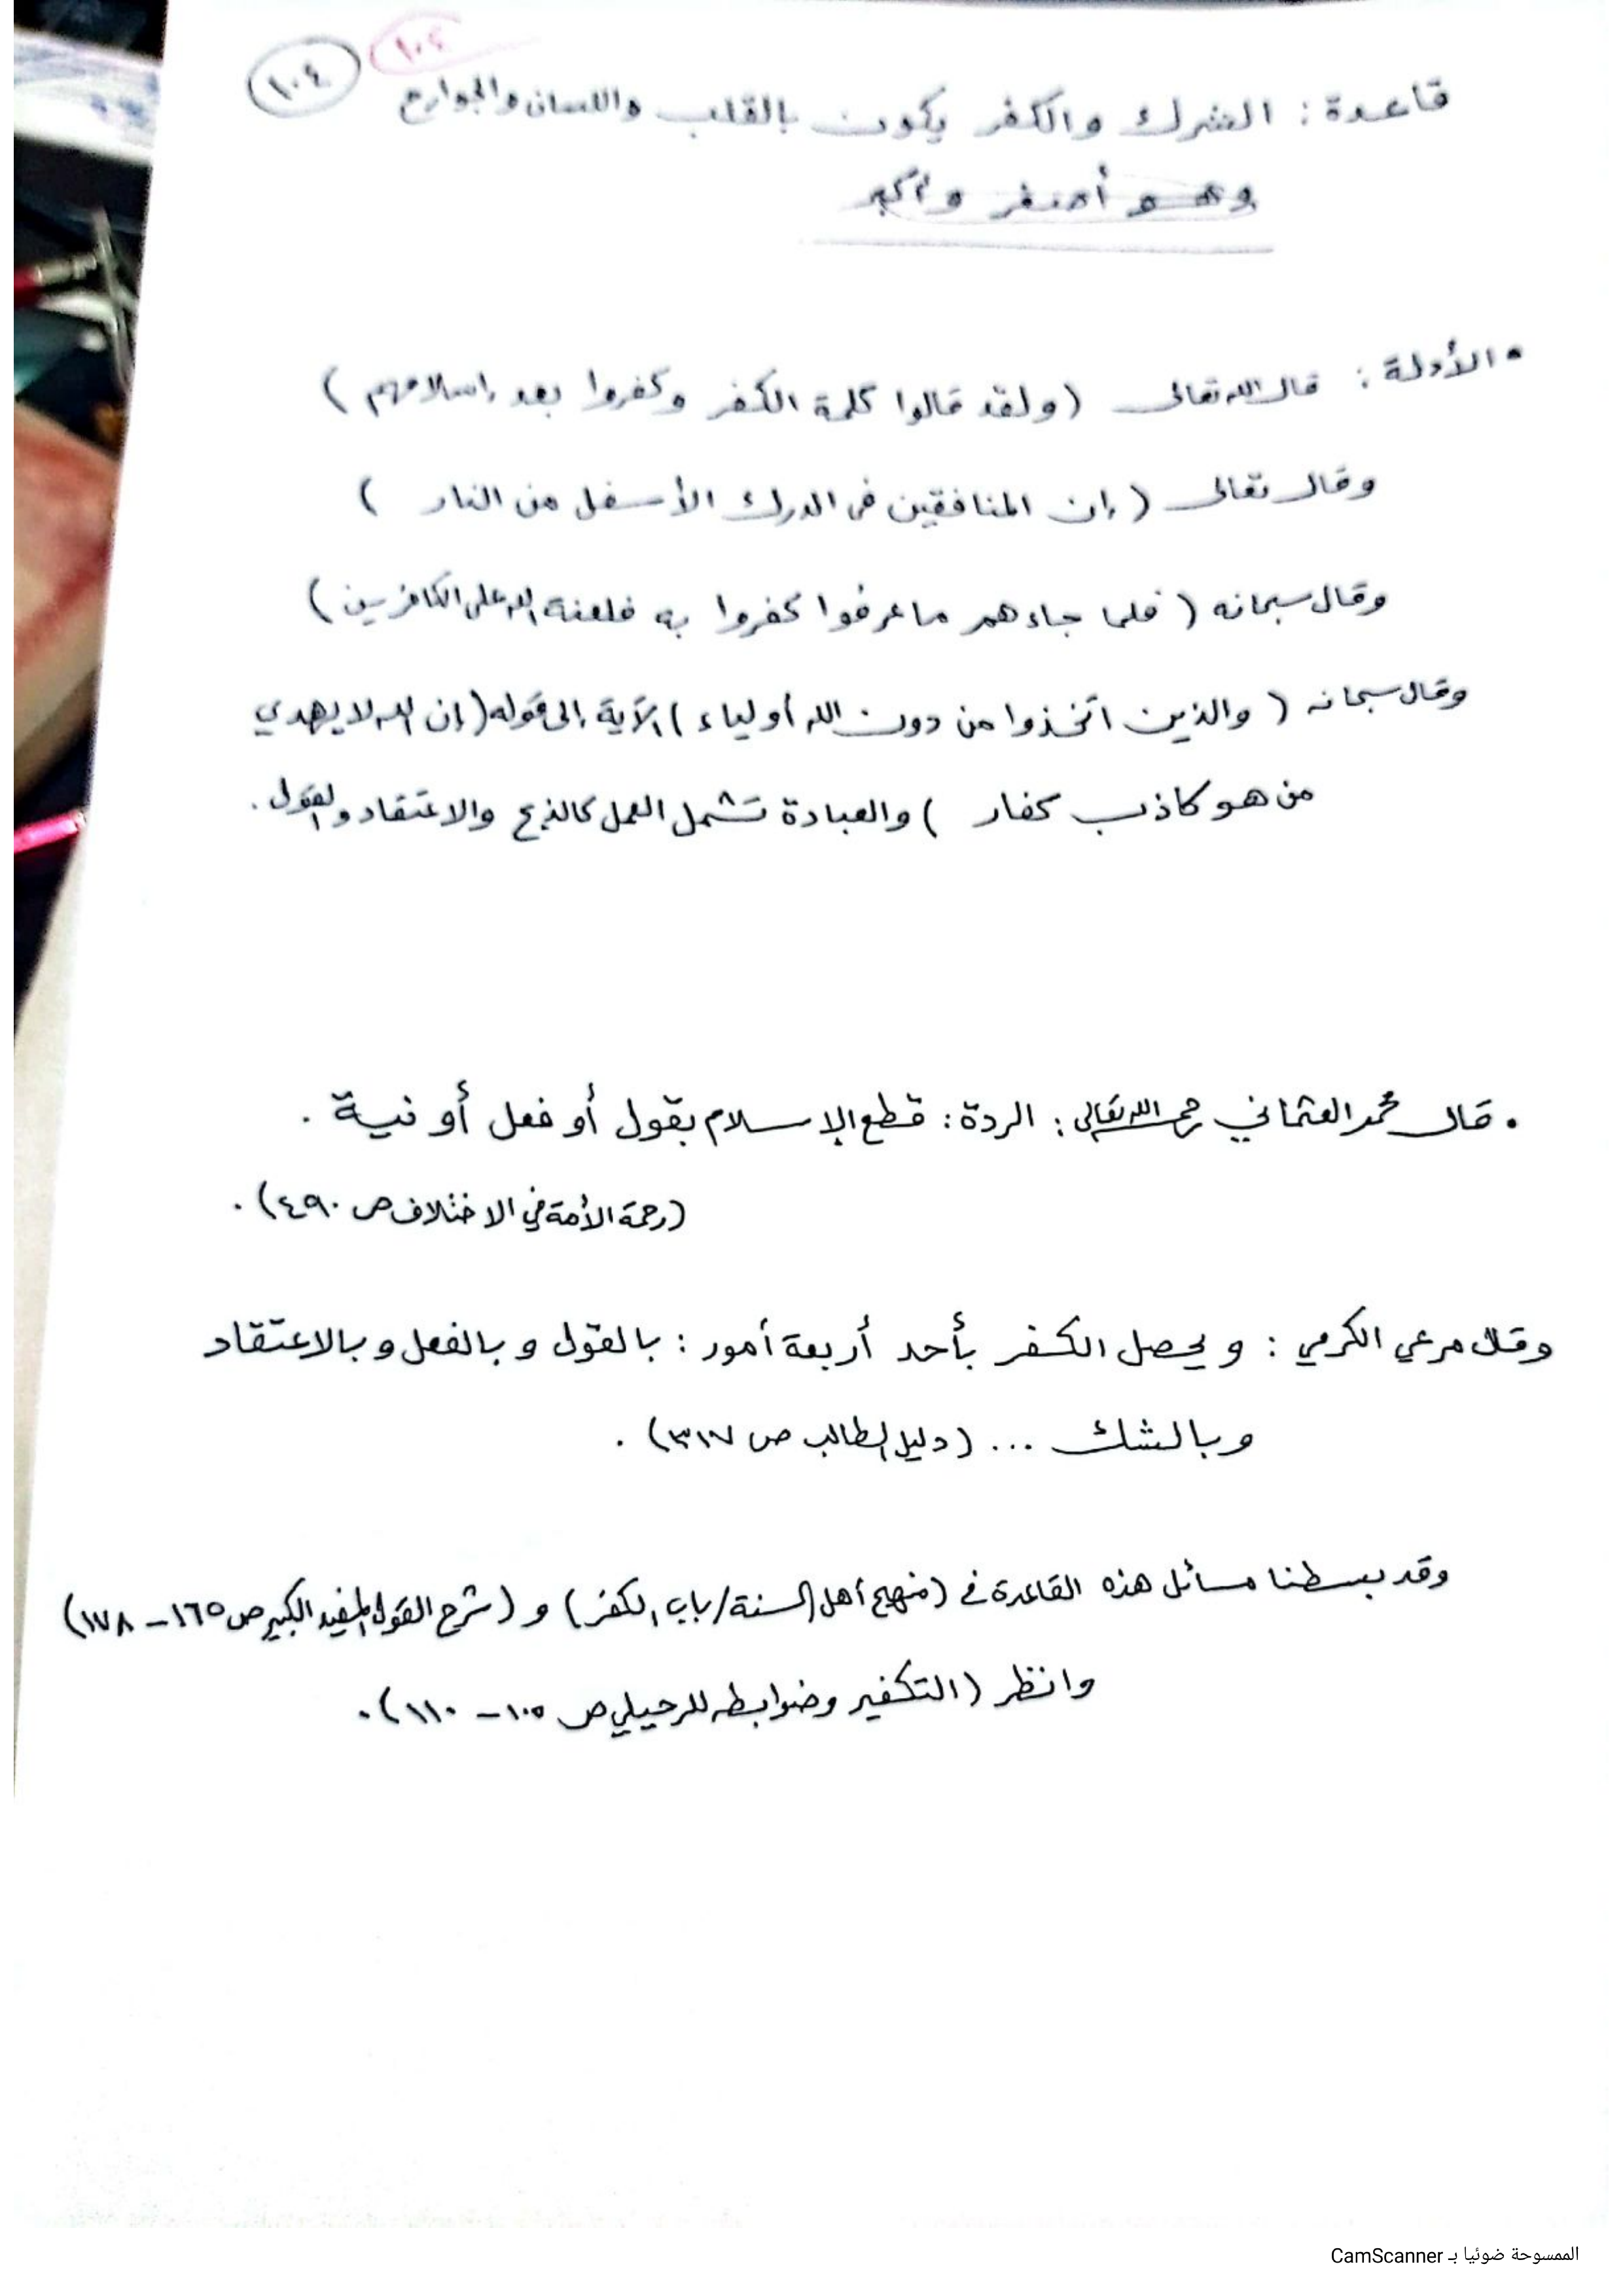 ١٠٤
١٠٤
قاعدة : الشرك والكفر يكون بالقلب واللسان والجوارح
وهو أصغر وأكبر
• الأدلة : قال الله تعالى (ولقد قالوا كلمة الكفر وكفروا بعد إسلامهم )
وقال تعالى ( إن المنافقين في الدرك الأسفل من النار )
وقال سبحانه ( فلما جاءهم ما عرفوا كفروا به فلعنة الله على الكافرين )
وقال سبحانه ( والذين اتخذوا من دون الله أولياء ) الآية إلى قوله (إن الله لا يهدي
من هو كاذب كفار ) والعبادة تشمل العمل كالذبح والاعتقاد والقول .
• قال محمد العثماني رحمه الله تعالى : الردة : قطع الإسلام بقول أو فعل أو نية .
(رحمة الأمة في الاختلاف ص ٤٩٠) .
وقال مرعي الكرمي : ويحصل الكفر بأحد أربعة أمور : بالقول وبالفعل وبالاعتقاد
وبالشك ... (دليل الطالب ص ٣١٧) .
وقد بسطنا مسائل هذه القاعدة في (منهج أهل السنة/باب الكفر) و (شرح القول المفيد الكبير ص ١٦٥ – ١٧٨)
وانظر (التكفير وضوابطه للرحيلي ص ١٠٥ – ١١٠) .
الممسوحة ضوئيا بـ CamScanner